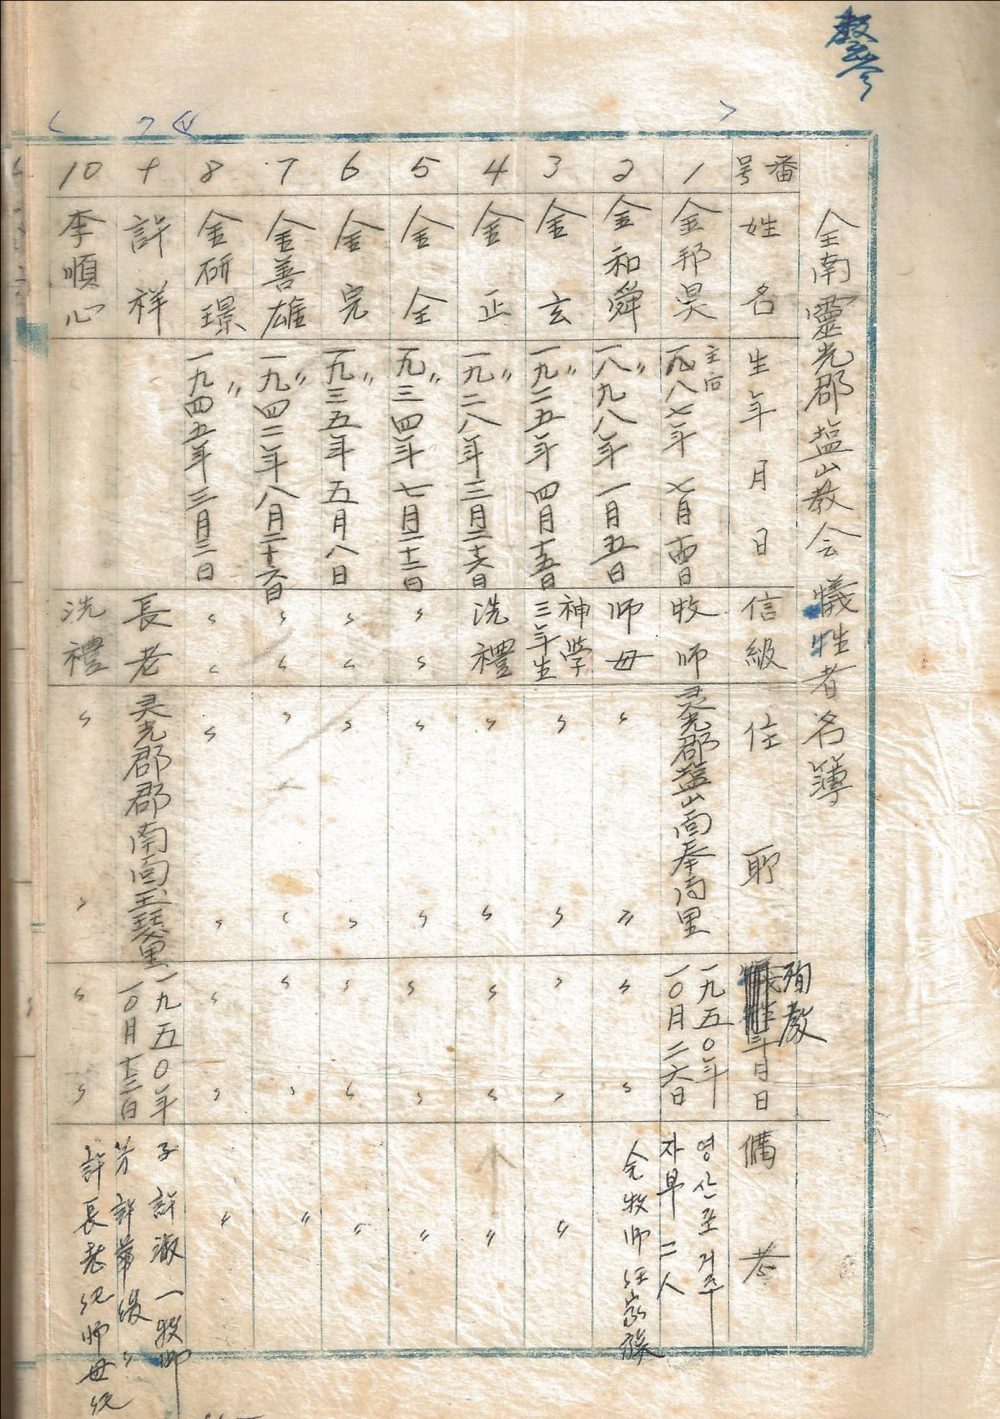 全南靈光郡塩山教会 犧牲者名簿
番号 姓名 生年月日 信級 住所 殉教 年月日 備考
1 金邦昊 主后 一八八七年 七月 日 牧師 灵光郡塩山面奉南里 一九五〇年 一〇月二六日 영산포 거주 자부 二人
2 金和舜 〃 一八九八年 一月五日 師母 〃 〃 〃 〃 金牧師 家族
3 金玄 〃 一九二五年 四月十五日 神学三年生 〃 〃 〃 〃 〃
4 金正 〃 一九二八年 三月二六日 洗禮 〃 〃 〃 〃 〃
5 金全 〃 一九三四年 七月二十二日 〃 〃 〃 〃 〃 〃 〃
6 金完 〃 一九三五年 五月八日 〃 〃 〃 〃 〃 〃 〃
7 金善雄 〃 一九四二年八月二十六日 〃 〃 〃 〃 〃 〃 〃
8 金研璟 〃 一九四五年三月三日 〃 〃 〃 〃 〃 〃 〃
9 許祥 長老 灵光郡郡南面玉琴里 一九五〇年 一〇月十三日 子 許淑一牧師
10 李順心 洗禮 〃 〃 〃 〃 許長老 師母